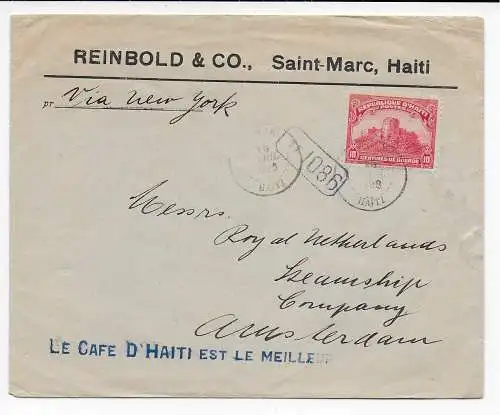 REINBOLD & CO., Saint-Marc, Haiti
pr Via New York
REPUBLIQUE D'HAITI
POSTES
10 10
CENTIMES DE GOURDE
HAITI
HAITI
1086
Messrs.
Royal Netherlands
Steamship
Company
Amsterdam
LE CAFE D'HAITI EST LE MEILLEUR